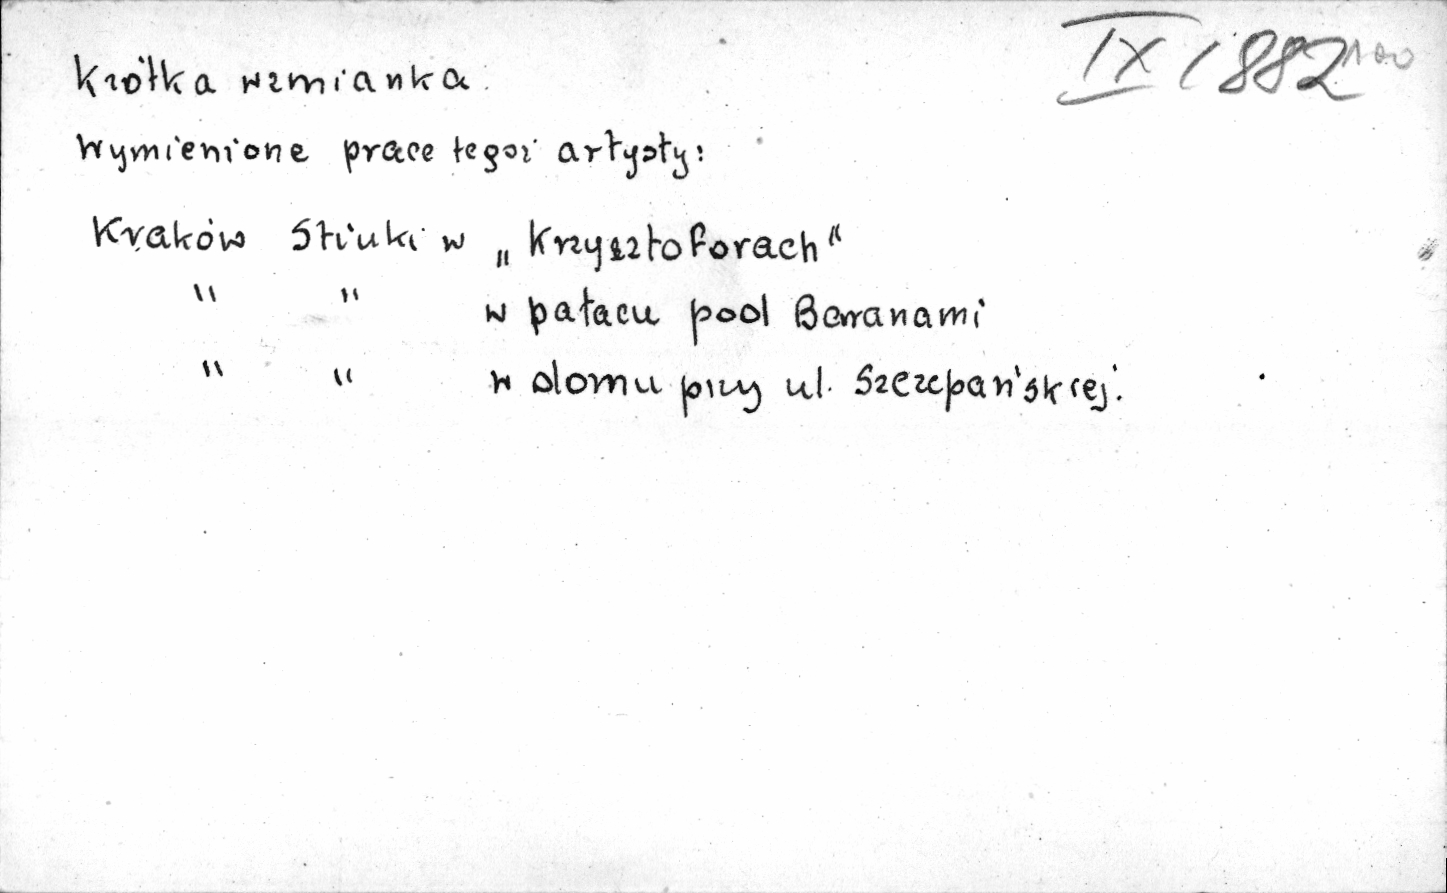 IX/882 100
Krótka wzmianka.
Wymienione prace tegoż artysty:
Kraków Stiuki w „Krzysztoforach“
" " w pałacu pod Baranami
" " w domu przy ul. Szczepańskiej.